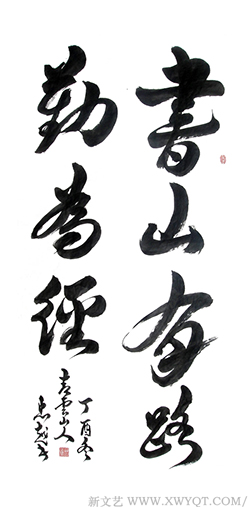 書山有路
勤為徑
丁酉冬
青雲山人
新文艺 / WWW.XWYQT.COM